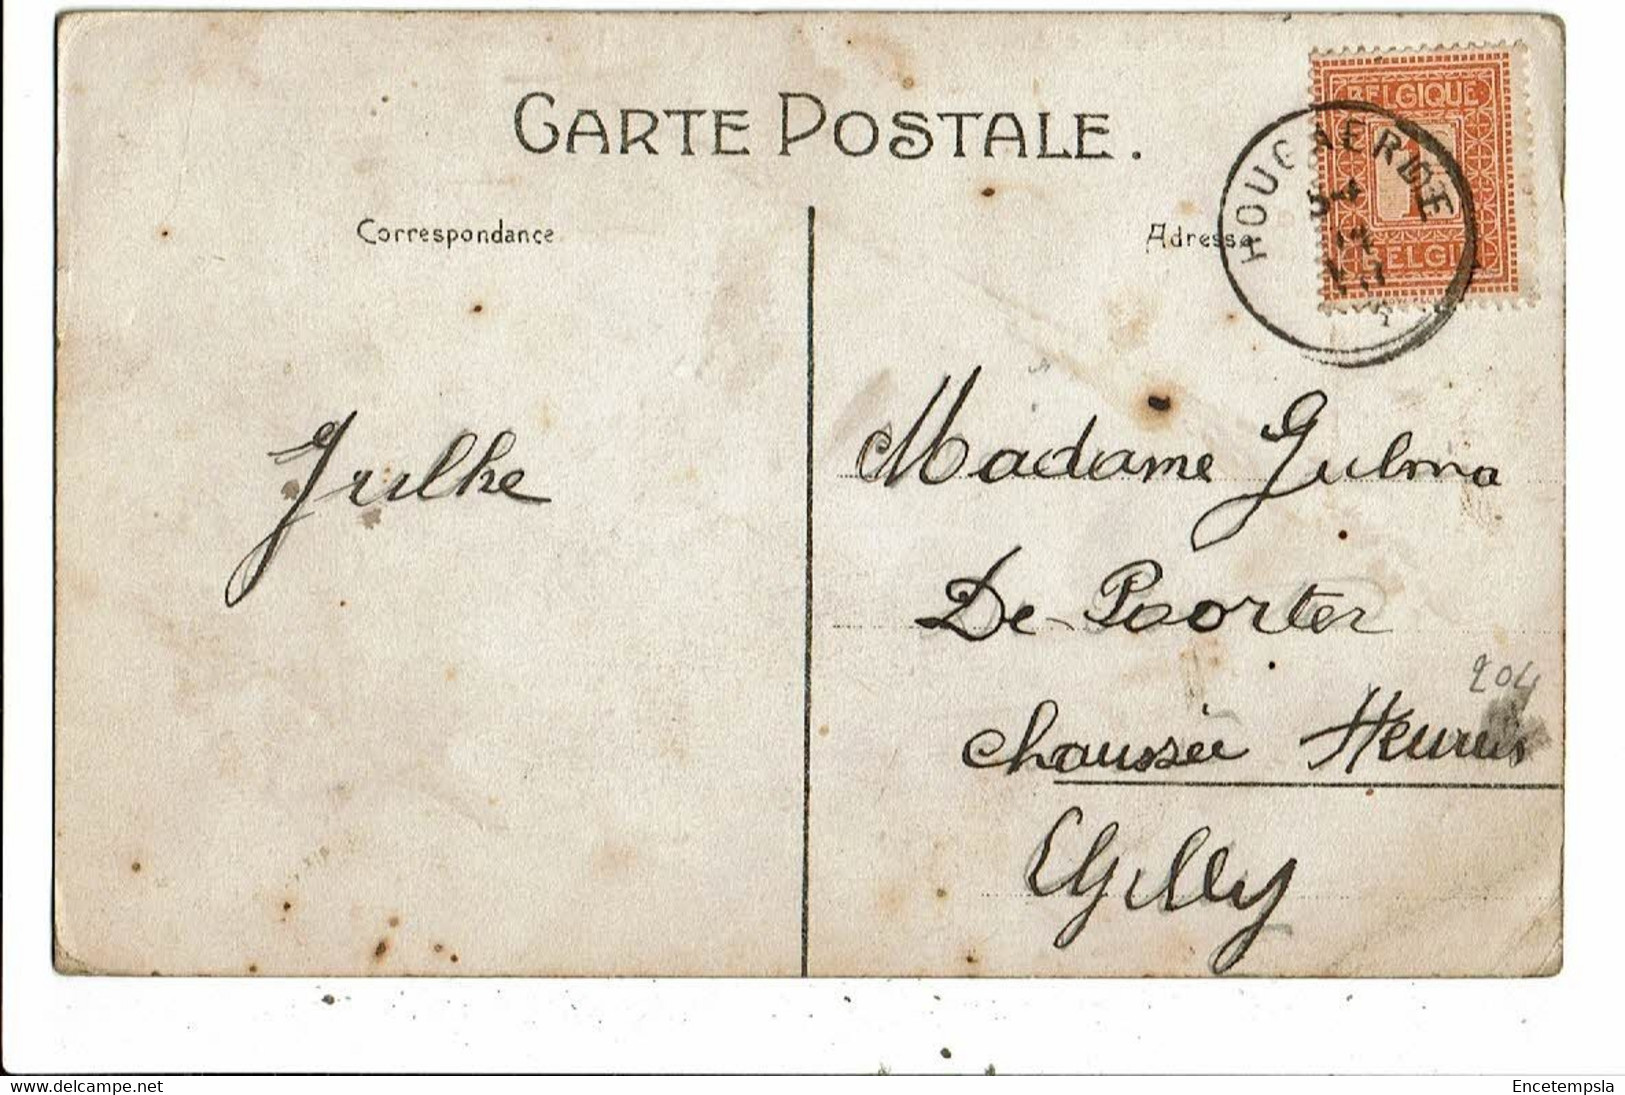 CARTE POSTALE.
Correspondance
Adresse
BELGIQUE
1
BELGIË
HOUGAERDE
Julke
Madame Julma
De Poorter
204
chaussée Fleurus
Gilly
www.delcampe.net
Encetempsla